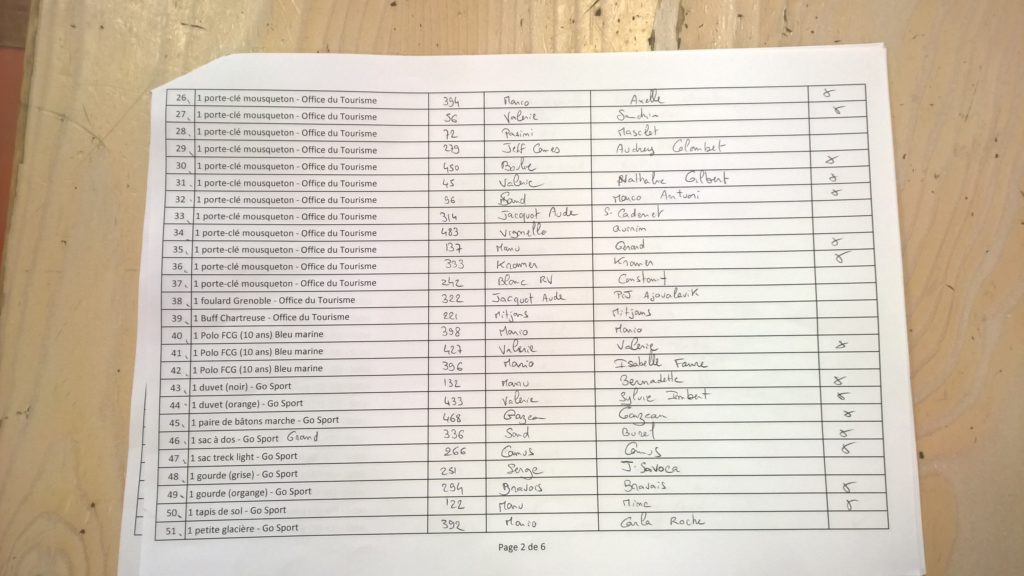 26 1 porte-clé mousqueton - Office du Tourisme 394 Marco Axelle 8
27 1 porte-clé mousqueton - Office du Tourisme 56 Valérie 8
28 1 porte-clé mousqueton - Office du Tourisme 72 Pasimi Masclet
29 1 porte-clé mousqueton - Office du Tourisme 279 Jeff Audrey Colombet
30 1 porte-clé mousqueton - Office du Tourisme 450 8
31 1 porte-clé mousqueton - Office du Tourisme 45 Valérie Nathalie Gilbert 8
32 1 porte-clé mousqueton - Office du Tourisme 96 Marco Antuoni 8
33 1 porte-clé mousqueton - Office du Tourisme 314 Jacquot Aude S. Cadernet
34 1 porte-clé mousqueton - Office du Tourisme 483 Vignello
35 1 porte-clé mousqueton - Office du Tourisme 137 Manu Gérard 8
36 1 porte-clé mousqueton - Office du Tourisme 393 Kramer Kramer 8
37 1 porte-clé mousqueton - Office du Tourisme 242 Blanc RV Constant
38 1 foulard Grenoble - Office du Tourisme 322 Jacquot Aude PJ Ajavalavik
39 1 Buff Chartreuse - Office du Tourisme 221 Mitjans Mitjans
40 1 Polo FCG (10 ans) Bleu marine 398 Mario Mario
41 1 Polo FCG (10 ans) Bleu marine 427 Valérie Valérie 8
42 1 Polo FCG (10 ans) Bleu marine 396 Mario Isabelle Faure
43 1 duvet (noir) - Go Sport 132 Manu Bernadette 8
44 1 duvet (orange) - Go Sport 433 Valérie Sylvie Imbert 8
45 1 paire de bâtons marche - Go Sport 468 Gazean Gazean 8
46 1 sac à dos - Go Sport Grand 336 Sand Burel 8
47 1 sac treck light - Go Sport 266 Camus Camus 8
48 1 gourde (grise) - Go Sport 251 Serge J. Savoca
49 1 gourde (organge) - Go Sport 294 Bravais Bravais 8
50 1 tapis de sol - Go Sport 122 Manu Mime 8
51 1 petite glacière - Go Sport 392 Mario Carla Roche
Page 2 de 6